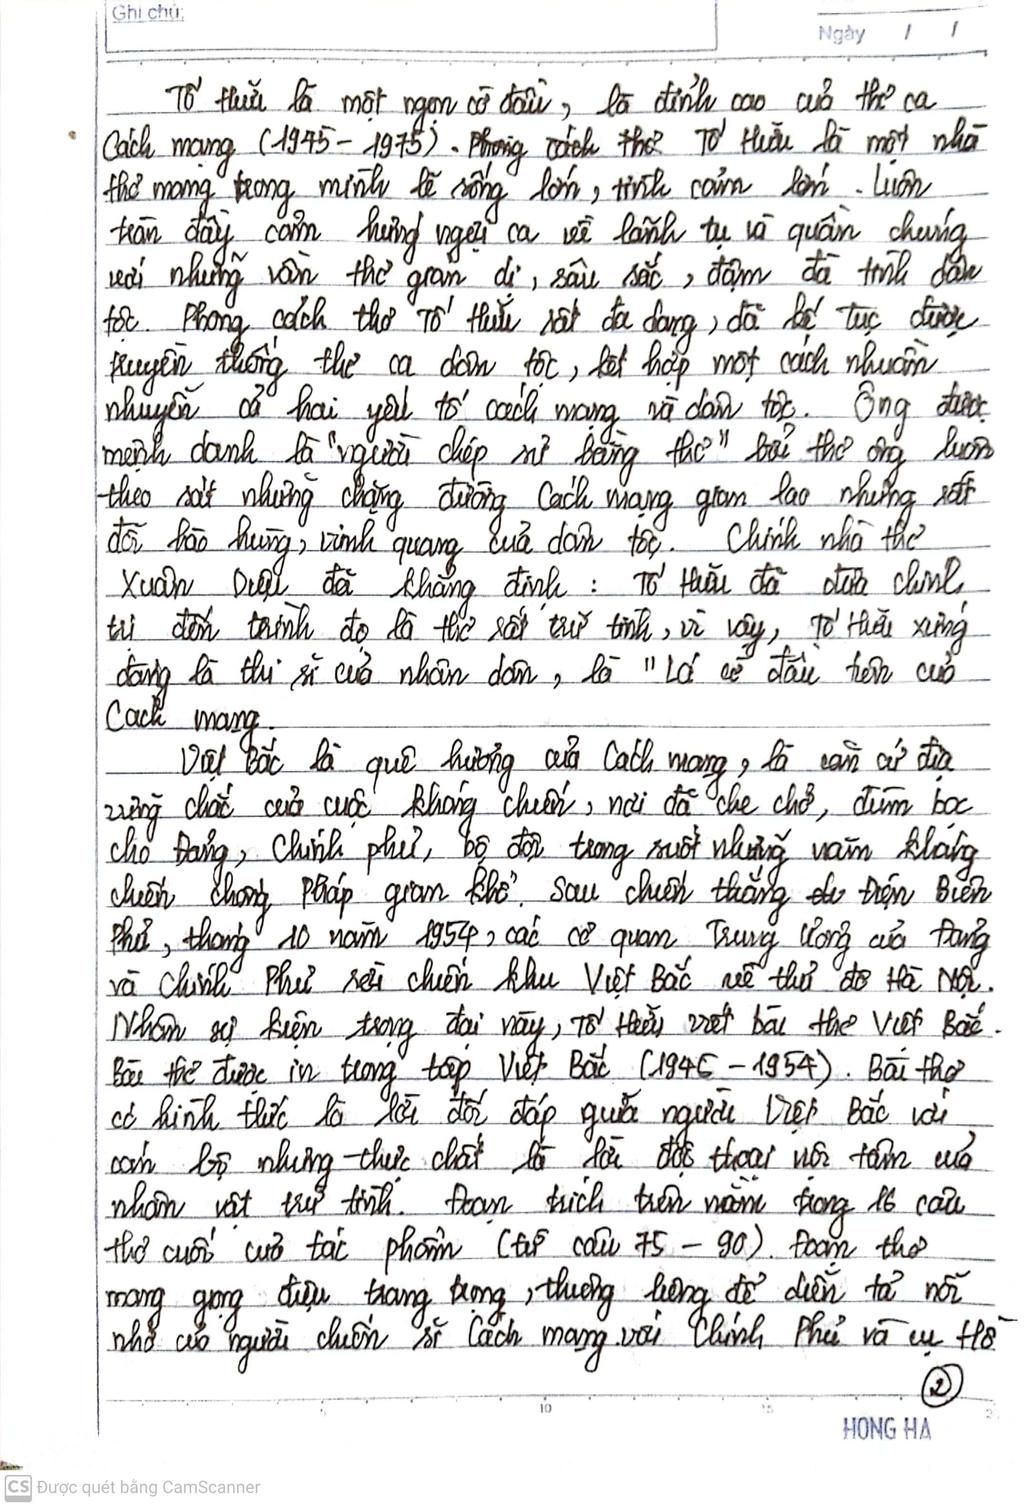 Ghi chú:
Ngày / /
Tố Hữu là một ngọn cờ đầu, là đỉnh cao của thơ ca
Cách mạng (1945 - 1975). Phong cách thơ Tố Hữu là một nhà
thơ mang trong mình lẽ sống lớn, tình cảm lớn. Luôn
tràn đầy cảm hứng ngợi ca về lãnh tụ và quần chúng
với những vần thơ giản dị, sâu sắc, đậm đà tính dân
tộc. Phong cách thơ Tố Hữu rất đa dạng, đã kế tục được
truyền thống thơ ca dân tộc, kết hợp một cách nhuần
nhuyễn cả hai yếu tố cách mạng và dân tộc. Ông được
mệnh danh là "người chép sử bằng thơ" bởi thơ ông luôn
theo sát những chặng đường Cách mạng gian lao nhưng rất
đỗi hào hùng, vinh quang của dân tộc. Chính nhà thơ
Xuân Diệu đã khẳng định: Tố Hữu đã đưa chính
trị đến trình độ là thơ rất trữ tình, vì vậy, Tố Hữu xứng
đáng là thi sĩ của nhân dân, là "Lá cờ đầu tiên của
Cách mạng.
Việt Bắc là quê hương của Cách mạng, là căn cứ địa
vững chắc của cuộc kháng chiến, nơi đã che chở, đùm bọc
cho Đảng, Chính phủ, bộ đội trong suốt những năm kháng
chiến chống Pháp gian khổ. Sau chiến thắng Điện Biên
Phủ, tháng 10 năm 1954, các cơ quan Trung Ương của Đảng
và Chính Phủ rời chiến khu Việt Bắc về thủ đô Hà Nội.
Nhân sự kiện trọng đại này, Tố Hữu viết bài thơ Việt Bắc.
Bài thơ được in trong tập Việt Bắc (1946 - 1954). Bài thơ
có hình thức là lời đối đáp giữa người Việt Bắc với
cán bộ nhưng thực chất là lời độc thoại nội tâm của
nhân vật trữ tình. Đoạn trích trên nằm trong 16 câu
thơ cuối của tác phẩm (từ câu 75 - 90). Đoạn thơ
mang giọng điệu trang trọng, thương lòng để diễn tả nỗi
nhớ của người chiến sĩ Cách mạng với Chính Phủ và cụ Hồ
2
5 10 15 2
HONG HA
CS Được quét bằng CamScanner